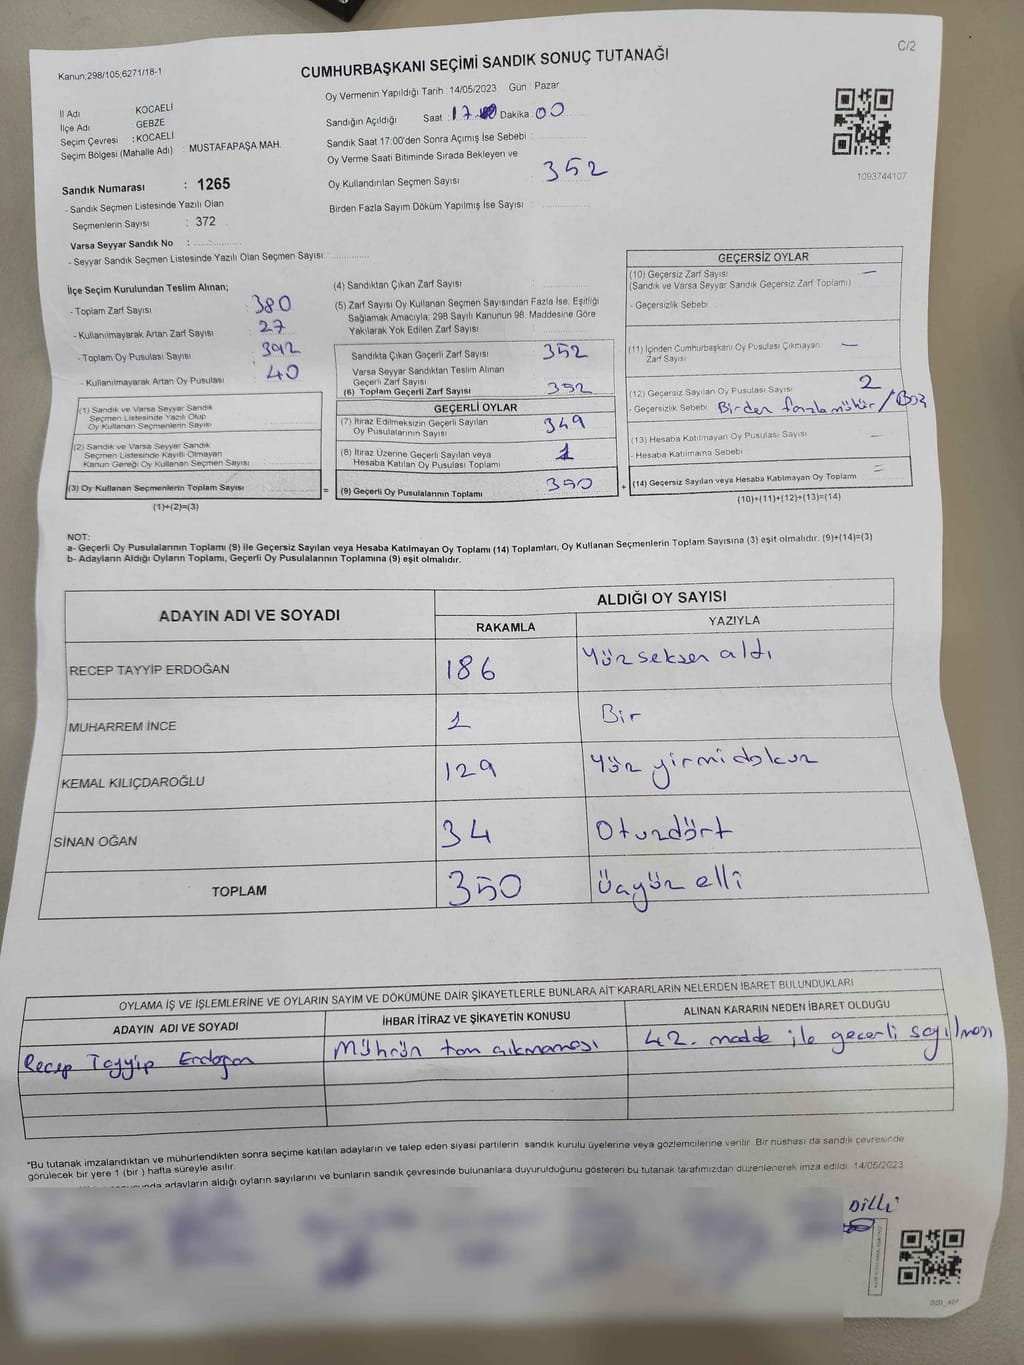 C/2
Kanun;298/105;6271/18-1
CUMHURBAŞKANI SEÇİMİ SANDIK SONUÇ TUTANAĞI
Oy Vermenin Yapıldığı Tarih : 14/05/2023 Gün : Pazar
İl Adı KOCAELİ
İlçe Adı GEBZE
Seçim Çevresi : KOCAELİ
Seçim Bölgesi (Mahalle Adı) : MUSTAFAPAŞA MAH.
Sandığın Açıldığı Saat : 17.00 Dakika : 00
Sandık Saat 17:00'den Sonra Açımış İse Sebebi :
Oy Verme Saati Bitiminde Sırada Bekleyen ve
Oy Kullandırılan Seçmen Sayısı : 352
Birden Fazla Sayım Döküm Yapılmış İse Sayısı :
1093744107
Sandık Numarası : 1265
- Sandık Seçmen Listesinde Yazılı Olan
Seçmenlerin Sayısı : 372
Varsa Seyyar Sandık No :
- Seyyar Sandık Seçmen Listesinde Yazılı Olan Seçmen Sayısı:
İlçe Seçim Kurulundan Teslim Alınan;
- Toplam Zarf Sayısı : 380
- Kullanılmayarak Artan Zarf Sayısı : 27
- Toplam Oy Pusulası Sayısı : 392
- Kullanılmayarak Artan Oy Pusulası : 40
(1) Sandık ve Varsa Seyyar Sandık
Seçmen Listesinde Yazılı Olup
Oy Kullanan Seçmenlerin Sayısı
(2) Sandık ve Varsa Seyyar Sandık
Seçmen Listesinde Kayıtlı Olmayan
Kanun Gereği Oy Kullanan Seçmen Sayısı
(3) Oy Kullanan Seçmenlerin Toplam Sayısı
(1)+(2)=(3)
(4) Sandıktan Çıkan Zarf Sayısı :
(5) Zarf Sayısı Oy Kullanan Seçmen Sayısından Fazla İse, Eşitliği
Sağlamak Amacıyla; 298 Sayılı Kanunun 98. Maddesine Göre
Yakılarak Yok Edilen Zarf Sayısı :
Sandıkta Çıkan Geçerli Zarf Sayısı : 352
Varsa Seyyar Sandıktan Teslim Alınan
Geçerli Zarf Sayısı
(6) Toplam Geçerli Zarf Sayısı : 352
GEÇERLİ OYLAR
(7) İtiraz Edilmeksizin Geçerli Sayılan
Oy Pusulalarının Sayısı : 349
(8) İtiraz Üzerine Geçerli Sayılan veya
Hesaba Katılan Oy Pusulası Toplamı : 1
= (9) Geçerli Oy Pusulalarının Toplamı : 350
GEÇERSİZ OYLAR
(10) Geçersiz Zarf Sayısı : —
(Sandık ve Varsa Seyyar Sandık Geçersiz Zarf Toplamı)
- Geçersizlik Sebebi :
(11) İçinden Cumhurbaşkanı Oy Pusulası Çıkmayan
Zarf Sayısı —
(12) Geçersiz Sayılan Oy Pusulası Sayısı : 2
- Geçersizlik Sebebi : Birden fazla mühür / Boş
(13) Hesaba Katılmayan Oy Pusulası Sayısı : —
- Hesaba Katılmama Sebebi
+ (14) Geçersiz Sayılan veya Hesaba Katılmayan Oy Toplamı :
(10)+(11)+(12)+(13)=(14)
NOT:
a- Geçerli Oy Pusulalarının Toplamı (9) ile Geçersiz Sayılan veya Hesaba Katılmayan Oy Toplamı (14) Toplamları, Oy Kullanan Seçmenlerin Toplam Sayısına (3) eşit olmalıdır. (9)+(14)=(3)
b- Adayların Aldığı Oyların Toplamı, Geçerli Oy Pusulalarının Toplamına (9) eşit olmalıdır.
ADAYIN ADI VE SOYADI ALDIĞI OY SAYISI
RAKAMLA YAZIYLA
RECEP TAYYİP ERDOĞAN 186 Yüz seksen altı
MUHARREM İNCE 1 Bir
KEMAL KILIÇDAROĞLU 129 Yüz yirmi dokuz
SİNAN OĞAN 34 Otuzdört
TOPLAM 350 Üçyüz elli
OYLAMA İŞ VE İŞLEMLERİNE VE OYLARIN SAYIM VE DÖKÜMÜNE DAİR ŞİKAYETLERLE BUNLARA AİT KARARLARIN NELERDEN İBARET BULUNDUKLARI
ADAYIN ADI VE SOYADI İHBAR İTİRAZ VE ŞİKAYETİN KONUSU ALINAN KARARIN NEDEN İBARET OLDUĞU
Recep Tayyip Erdoğan Mührün tam çıkmaması 42. madde ile geçerli sayılması
*Bu tutanak imzalandıktan ve mühürlendikten sonra seçime katılan adayların ve talep eden siyasi partilerin sandık kurulu üyelerine veya gözlemcilerine verilir. Bir nüshası da sandık çevresinde
görülecek bir yere 1 (bir ) hafta süreyle asılır.
adayların aldığı oyların sayılarını ve bunların sandık çevresinde bulunanlara duyurulduğunu gösteren bu tutanak tarafımızdan düzenlenerek imza edildi. 14/05/2023
DİLLİ